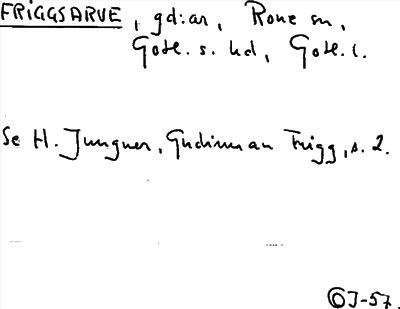 FRIGGSARVE, gd:ar, Rone sn,
Gotl. s. hd, Gotl. l.
Se H. Jungner, Gudinnan Frigg, s. 2.
ÖJ-57.